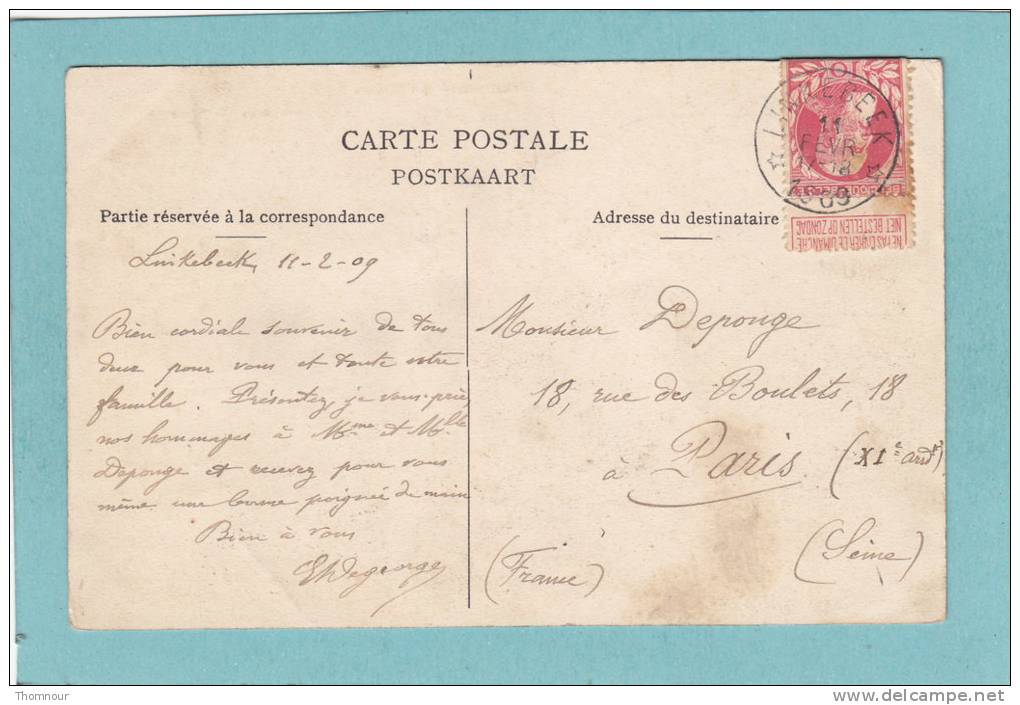 CARTE POSTALE
POSTKAART
Partie réservée à la correspondance
Linkebeek, 11-2-09
Bien cordiale souvenir de tous
deux pour vous et toute votre
famille. Présentez, je vous prie,
nos hommages à Mme et Mlle
Deponge et recevez pour vous
même une bonne poignée de main
Bien à vous
EhDegeorge
Adresse du destinataire
Monsieur Deponge
18, rue des Boulets, 18
à Paris (XIe ardt)
(Seine)
(France)
LINKEBEEK
11
FEVR
17-18
1909
10
NE PAS LIVRER LE DIMANCHE
NET BESTELLEN OP ZONDAG
Thomnour
delcampe.net